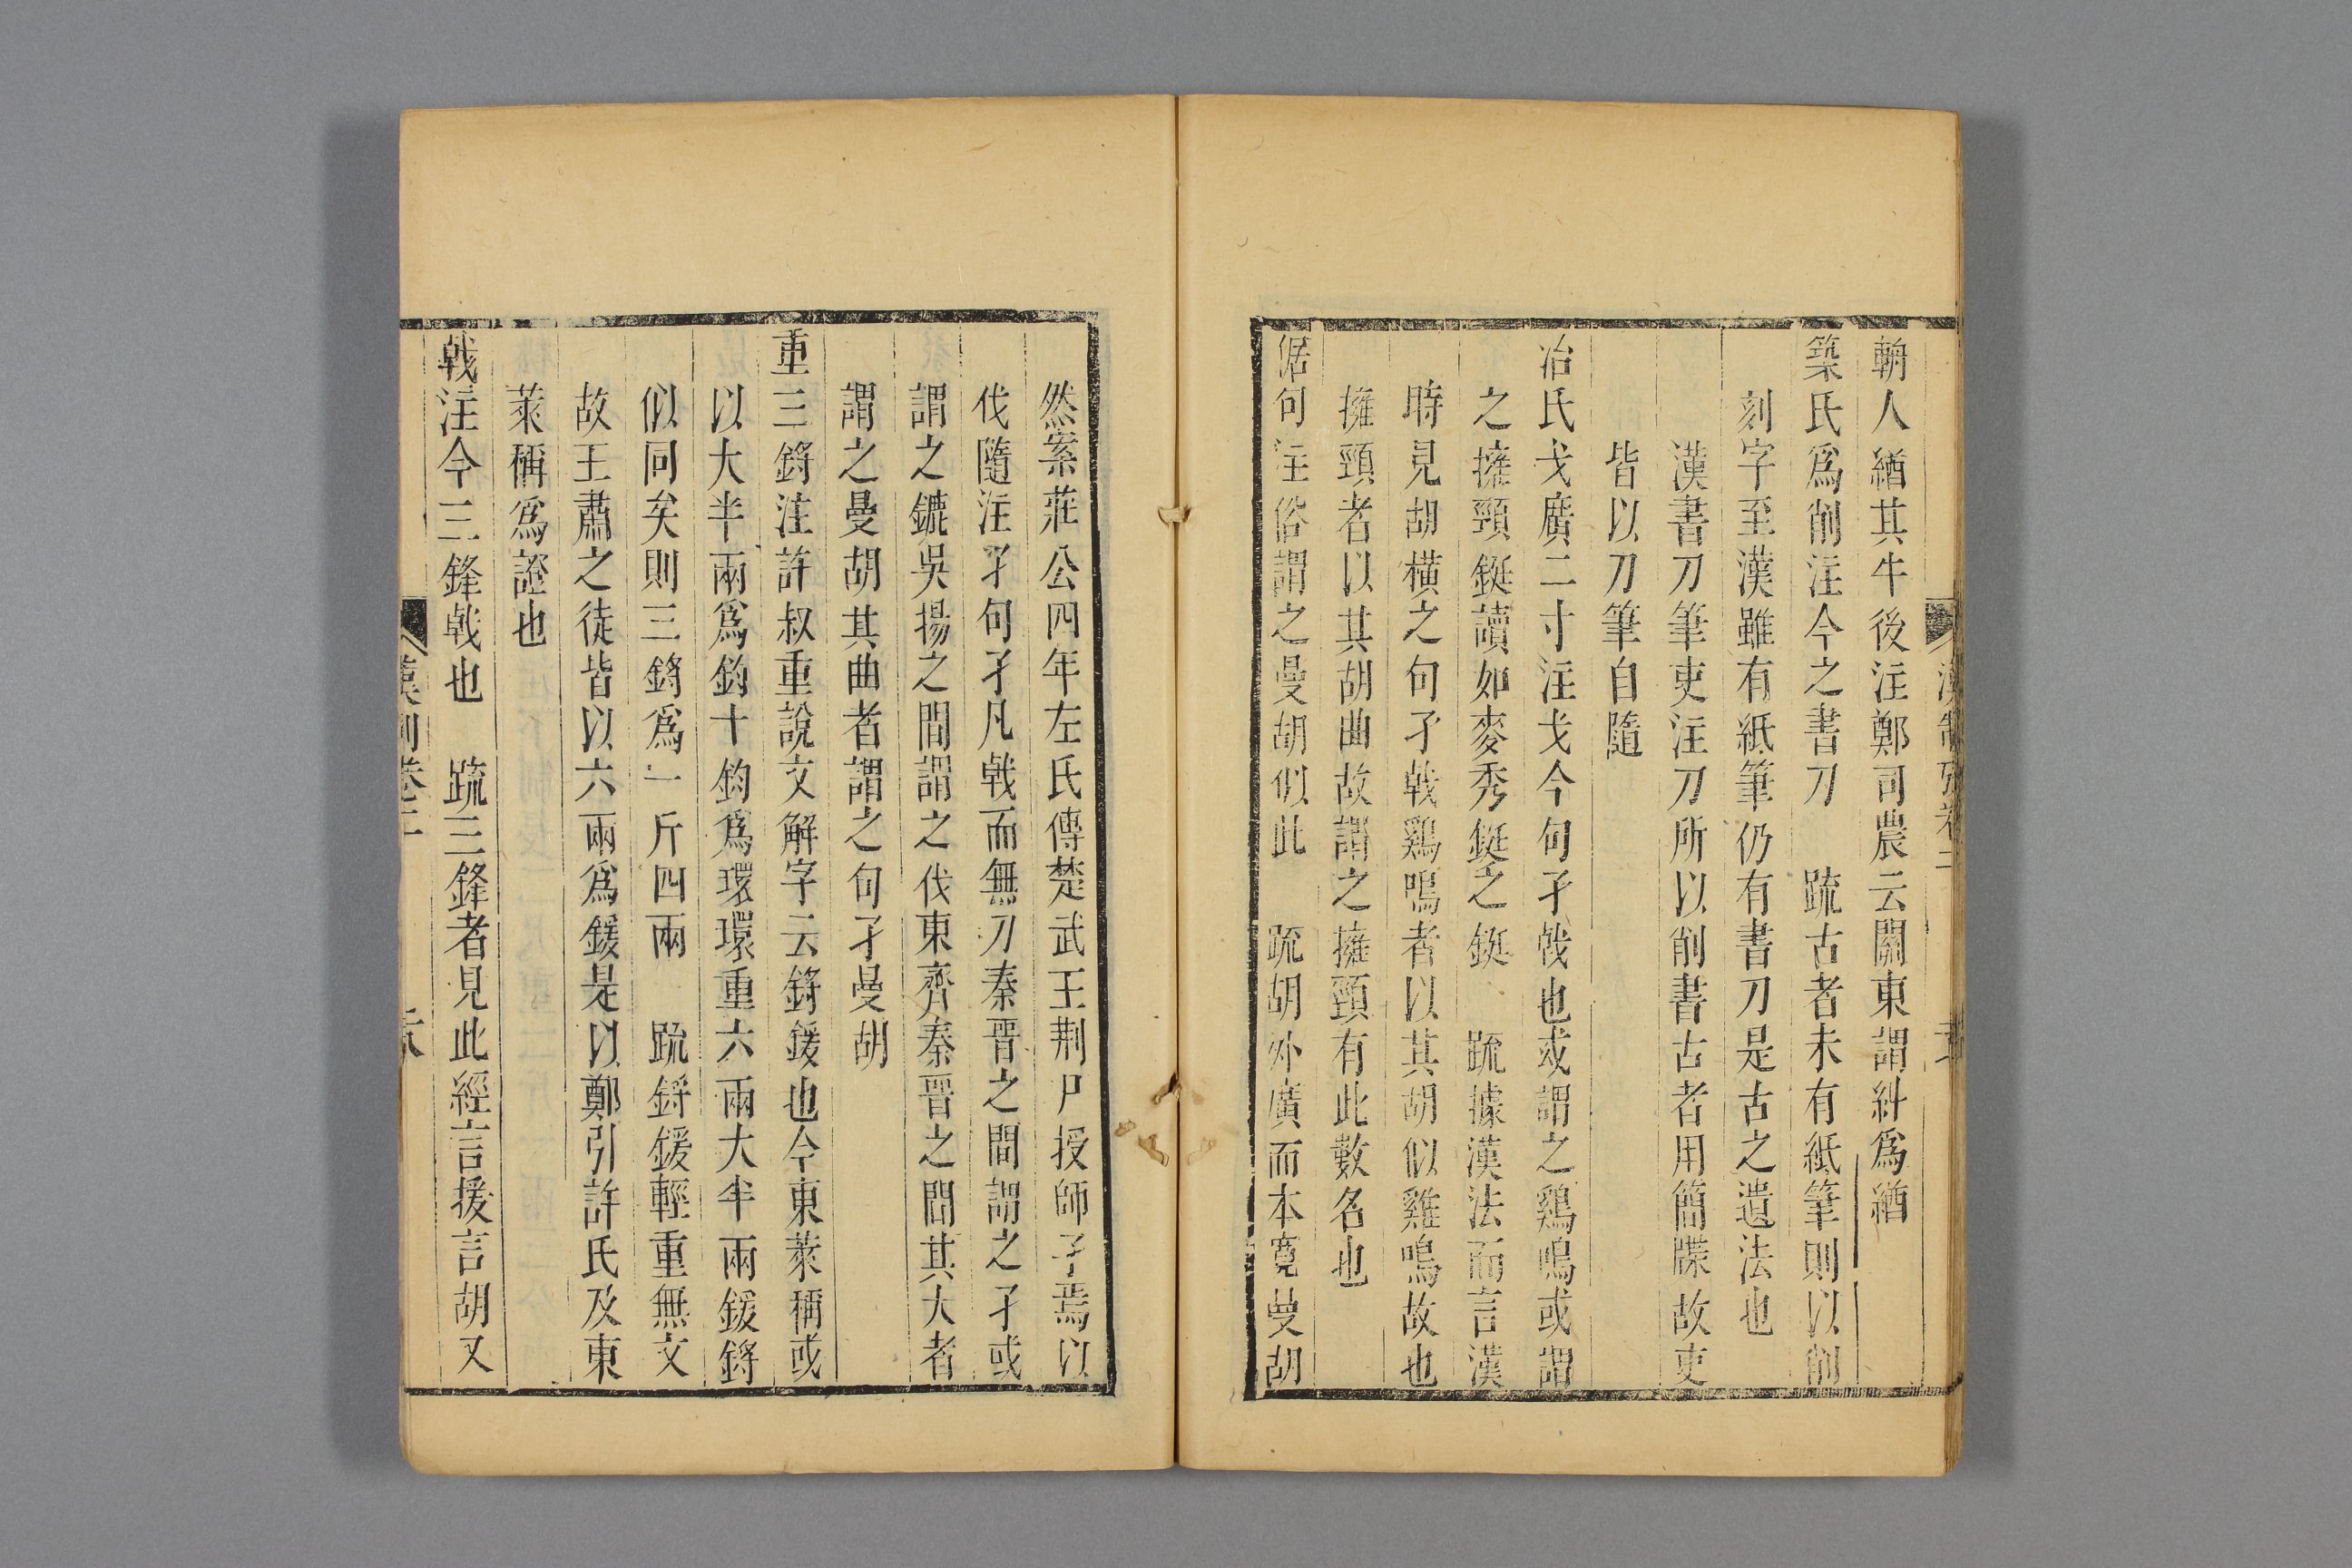 輈人緧其牛後注鄭司農云關東謂紂爲緧
築氏爲削注今之書刀　疏古者未有紙筆則以削
刻字至漢雖有紙筆仍有書刀是古之遺法也
漢書刀筆吏注刀所以削書古者用簡牒故吏
皆以刀筆自隨
冶氏戈廣二寸注戈今句孑戟也或謂之鷄鳴或謂
之擁頸鋋讀如麥秀鋋之鋋　疏據漢法而言漢
時見胡橫之句孑戟鷄鳴者以其胡似雞鳴故也
擁頸者以其胡曲故謂之擁頸有此數名也
倨句注俗謂之曼胡似此　疏胡外廣而本寬曼胡
然案莊公四年左氏傳楚武王荆尸授師孑焉以
伐隨注孑句孑凡戟而無刀秦晋之間謂之孑或
謂之鏣吳揚之間謂之伐東齊秦晋之間其大者
謂之曼胡其曲者謂之句孑曼胡
重三鋝注許叔重說文解字云鋝鍰也今東萊稱或
以大半兩爲鈞十鈞爲環環重六兩大半兩鍰鋝
似同矣則三鋝爲一斤四兩　疏鋝鍰輕重無文
故王肅之徒皆以六兩爲鍰是以鄭引許氏及東
萊稱爲證也
戟注今三鋒戟也　疏三鋒者見此經言援言胡又